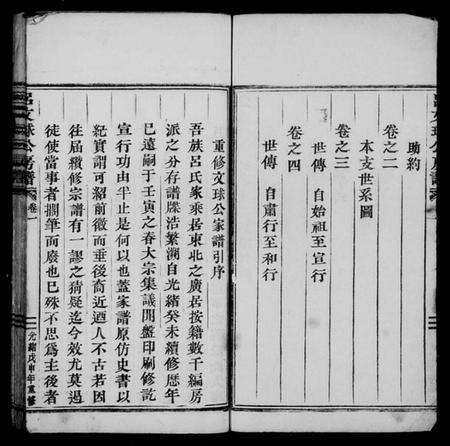 呂文球公房譜
助約
卷之二
本支世系圖
卷之三
世傳 自始祖至宣行
卷之四
世傳 自肅行至和行
重修文球公家譜引序
吾族呂氏家乘居東北之廣居按籍數千編房
派之分存譜牒浩繁溯自光緒癸未續修歷年
已遠嗣于壬寅之春大宗集議開盤印刷修訖
宣行功由半止是何以也蓋家譜原仿史書以
紀實謂可紹前徽而垂後裔近迺人不古若因
往屆續修宗譜有一謬之猜疑迄今效尤莫過
徒使當事者擱筆而廢也已殊不思爲主後者
呂文球公房譜 卷一
一 光緒戊申年重修